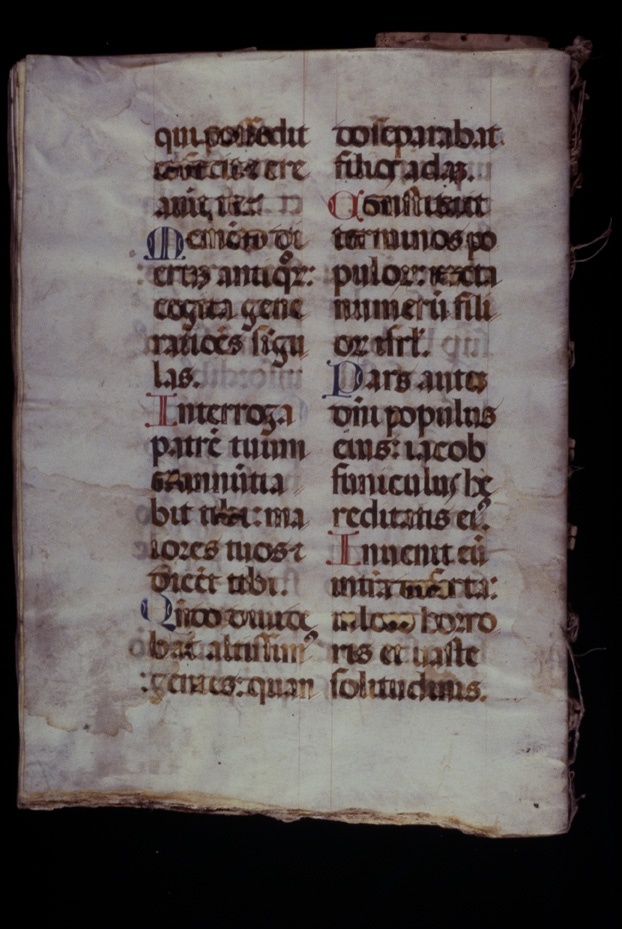 qui possedit
te fecit ⁊ cre
auit te.
Memēto di
erꝫ antiqͦꝝ:
cogita gene
ratiōēs sigu
las.
Interroga
patrē tuum
⁊ annūtia
bit tibi: ma
iores tuos ⁊
dicēt tibi.
Qñdo diuide
bat altissimꝰ
gentes: quan
do separabat
filios adaꝫ.
Constituit
terminos po
puloꝝ: iuxta
numerū fili
oꝝ isrł.
Pars autē
dñi populus
eius: iacob
funiculus he
reditatis eiꝰ.
Inuenit eū
in terra deserta:
in loco horro
ris et uaste
solitudinis.